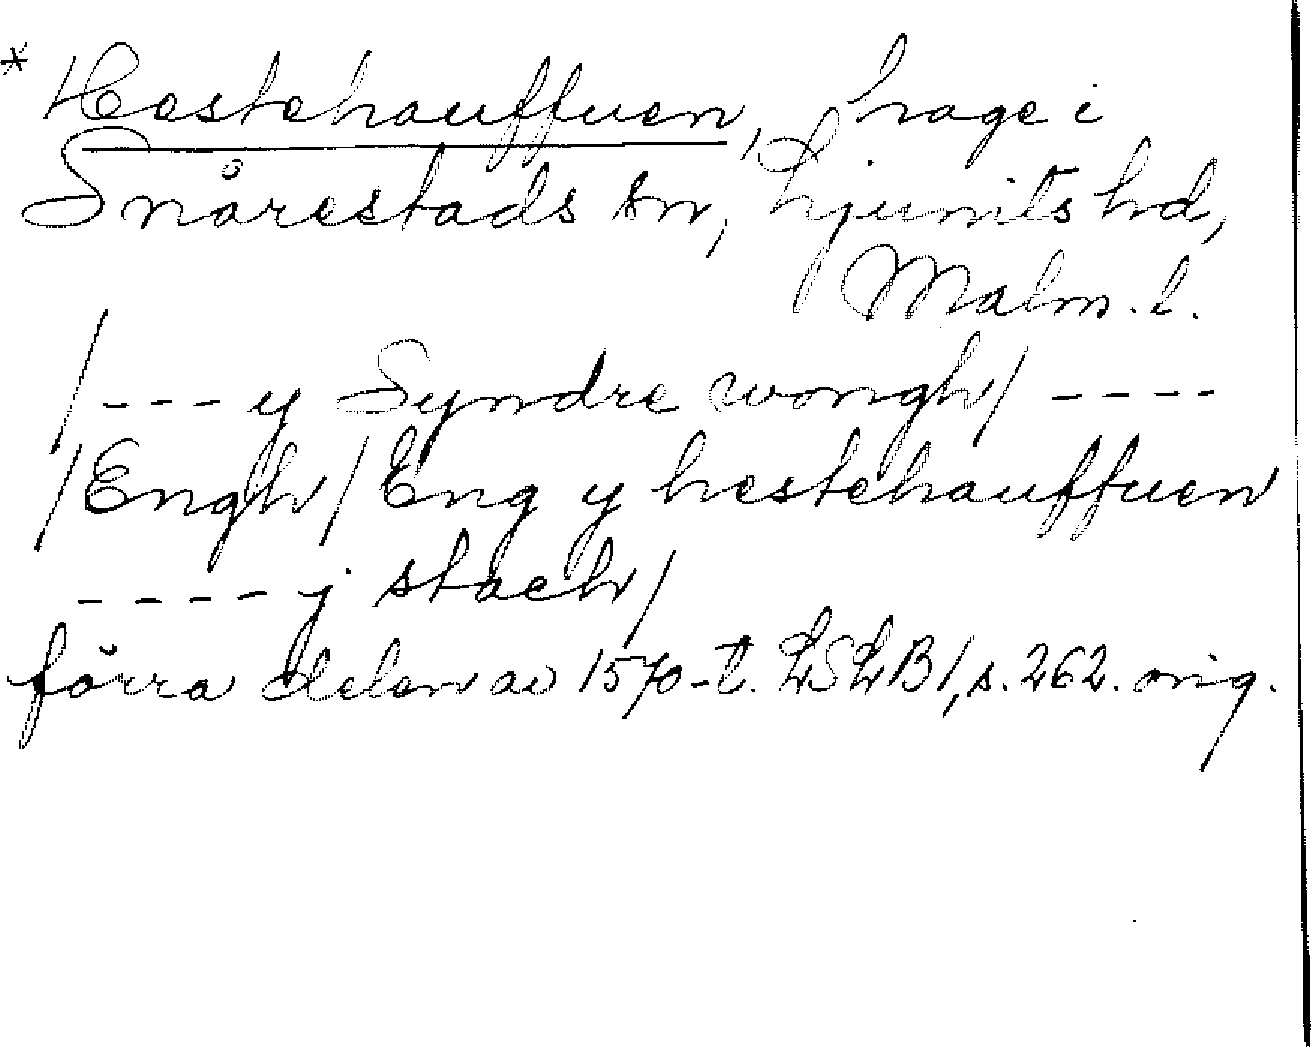 * Hestehauffuen, hage i
Snårestads sn, Ljunits hd,
Malm. l.
/--- y Syndre wongh/ ----
/Engh/ Eng y hestehauffuen
---- j stach/
förra delen av 1570-t. LSLB1, s. 262. orig.